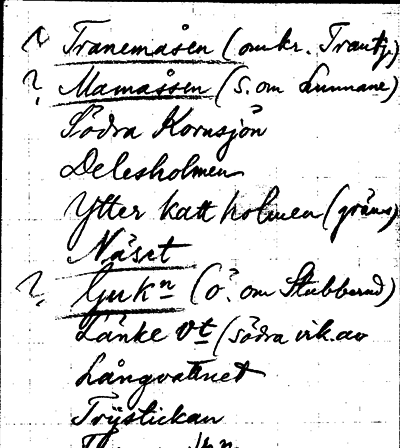 ? Tranemåsen (omkr. Trantj.)
? Mamåssen (S. om Lunnane)
Södra Kornsjön
Delesholmen
Ytter kattholmen (gräns)
Näset
? Gukn (ö. om Stubberud)
Länke vt (södra vik. av
Långvattnet
Trijstickan